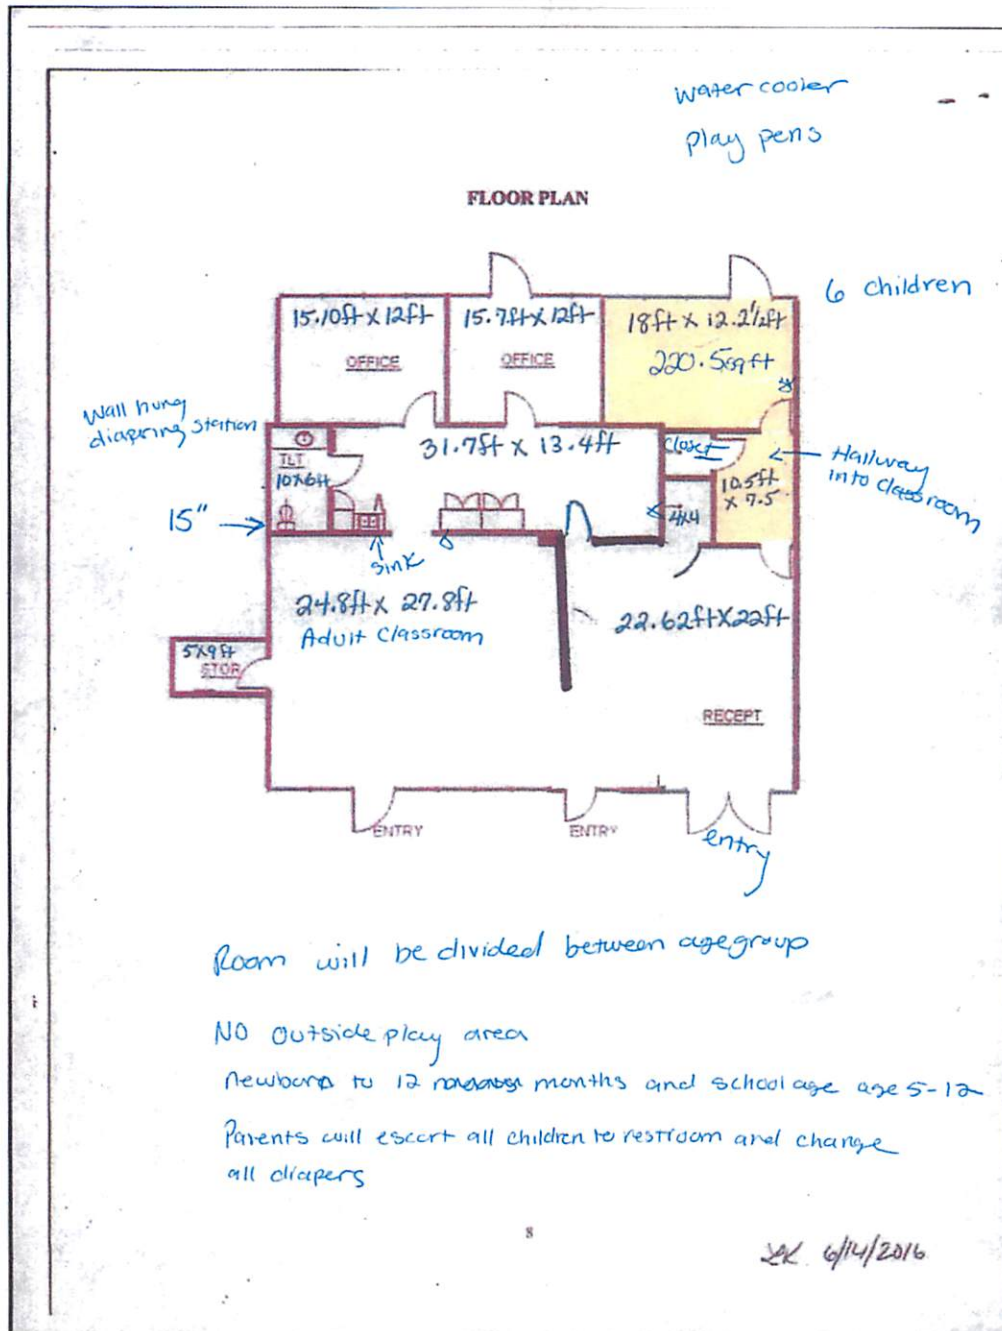 water cooler
play pens
FLOOR PLAN
6 children
15.10ft X 12ft
OFFICE
15.7ft X 12ft
OFFICE
18ft X 12.2½ft
220.5sq ft
Wall hung
diapering station
TLT
10X6ft
31.7ft X 13.4ft
closet
10.5ft
X 7.5
Hallway
into classroom
4X4
15"
sink
24.8ft X 27.8ft
Adult Classroom
22.62ft X 22ft
5X9ft
STOR
RECEPT
ENTRY
ENTRY
entry
Room will be divided between age group
NO outside play area
newborn to 12 months and school age age 5-12
Parents will escort all children to restroom and change
all diapers
8
6/14/2016